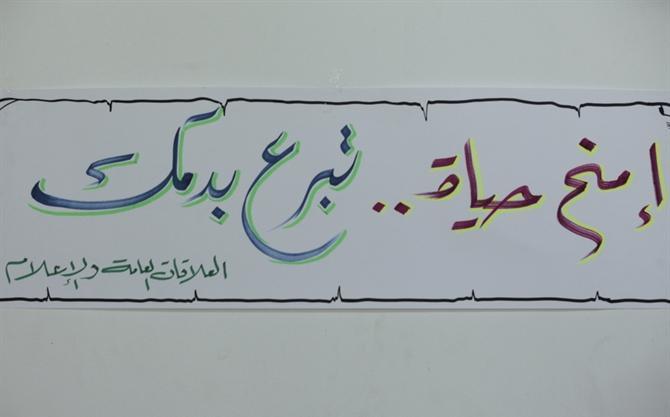 إمنح حياة .. تبرع بدمك
العلاقات العامة والإعلام